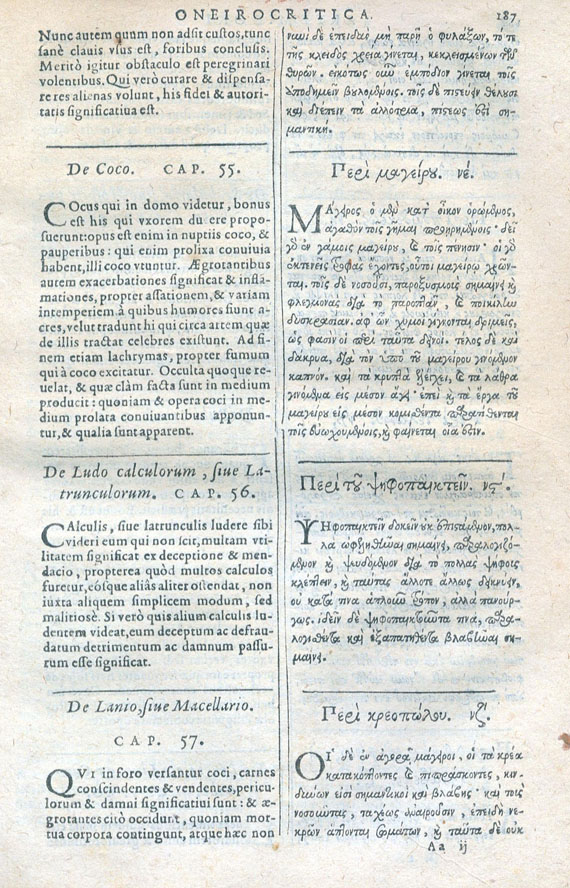 ONEIROCRITICA. 187
Nunc autem quum non adsit custos, tunc
sanè clauis vsus est, foribus conclusis.
Meritò igitur obstaculo est peregrinari
volentibus. Qui verò curare & dispensa-
re res alienas volunt, his fidei & autori-
tatis significatiua est.
De Coco. CAP. 55.
COcus qui in domo videtur, bonus
est his qui vxorem ducere propo-
suerunt: opus est enim in nuptiis coco, &
pauperibus: qui enim prolixa conuiuia
habent, illi coco vtuntur. Ægrotantibus
autem exacerbationes significat & infla-
mationes, propter assationem, & variam
intemperiem à quibus humores fiunt a-
cres, velut tradunt hi qui circa artem quæ
de illis tractat celebres existunt. Ad fi-
nem etiam lachrymas, propter fumum
qui à coco excitatur. Occulta quoque re-
uelat, & quæ clàm facta sunt in medium
producit: quoniam & opera coci in me-
dium prolata conuiuantibus apponun-
tur, & qualia sunt apparent.
De Ludo calculorum, siue La-
trunculorum. CAP. 56.
CAlculis, siue latrunculis ludere sibi
videri eum qui non scit, multam vti-
litatem significat ex deceptione & men-
dacio, propterea quòd multos calculos
furetur, eosque aliàs aliter ostendat, non
iuxta aliquem simplicem modum, sed
malitiosè. Si verò quis alium calculis lu-
dentem videat, eum deceptum ac defrau-
datum detrimentum ac damnum passu-
rum esse significat.
De Lanio, siue Macellario.
CAP. 57.
QVI in foro versantur coci, carnes
conscindentes & vendentes, pericu-
lorum & damni significatiui sunt: & æ-
grotantes citò occidunt, quoniam mor-
tua corpora contingunt, atque hæc non
ὁ φυλάξων, τότε
τῆς κλειδὸς χρεία γίνεται, κεκλεισμένων τῶν
θυρῶν. εἰκότως οὖν ἐμποδὼν γίνεται τοῖς
ἀποδημεῖν βουλομένοις. τοῖς δὲ πιστεύειν θέλουσι
καὶ διέπειν τὰ ἀλλότρια, πίστεώς ἐστι ση-
μαντική.
Περὶ μαγείρου. νέ.
ΜΑγειρος ὁ μὲν κατ' οἶκον ὁρώμενος,
ἀγαθὸν τοῖς γῆμαι προῃρημένοις· δεῖ
γὰρ ἐν γάμοις μαγείρου, καὶ τοῖς πένησιν· οἱ γὰρ
ἐκτενεῖς τροφὰς ἔχοντες, οὗτοι μαγείρῳ χρῶν-
ται. τοῖς δὲ νοσοῦσι, παροξυσμοὺς σημαίνει καὶ
φλεγμονὰς διὰ τὸ παροπτᾶν, καὶ ποικίλην
δυσκρασίαν. ἀφ' ὧν χυμοὶ γίνονται δριμεῖς,
ὥς φασιν οἱ περὶ ταῦτα δεινοί. τέλος δὲ καὶ
δάκρυα, διὰ τὸν ὑπὸ τοῦ μαγείρου γινόμενον
καπνόν. καὶ τὰ κρυπτὰ ἐξελέγχει, καὶ τὰ λάθρα
γινόμενα εἰς μέσον ἄγει· ἐπεὶ καὶ τὰ ἔργα τοῦ
μαγείρου εἰς μέσον κομισθέντα παρατίθενται
τοῖς εὐωχουμένοις, καὶ φαίνεται οἷά ἐστιν.
Περὶ τοῦ ψηφοπαικτεῖν. νϛ'.
ΨΗφοπαικτεῖν δοκεῖν οὐκ ἐπιστάμενον, πολ-
λὰ ὠφεληθῆναι σημαίνει, παραλογιζό-
μενον καὶ ψευδόμενον διὰ τὸ πολλὰς ψήφους
κλέπτειν, καὶ ταύτας ἄλλοτε ἄλλως δεικνύειν,
οὐ κατά τινα ἁπλοῦν τρόπον, ἀλλὰ πανούρ-
γως. ἰδεῖν δὲ ψηφοπαικτοῦντά τινα, παρα-
λογισθέντα καὶ ἐξαπατηθέντα βλαβῆναι ση-
μαίνει.
Περὶ κρεοπώλου. νζ'.
ΟΙ δὲ ἐν ἀγορᾷ μάγειροι, οἱ τὰ κρέα
κατακόπτοντες καὶ πιπράσκοντες, κιν-
δύνων εἰσὶ σημαντικοὶ καὶ βλάβης· καὶ τοὺς
νοσοῦντας, ταχέως ἀναιροῦσιν, ἐπειδὴ νε-
κρῶν ἅπτονται σωμάτων, καὶ ταῦτα δὲ οὐκ
Aa ij